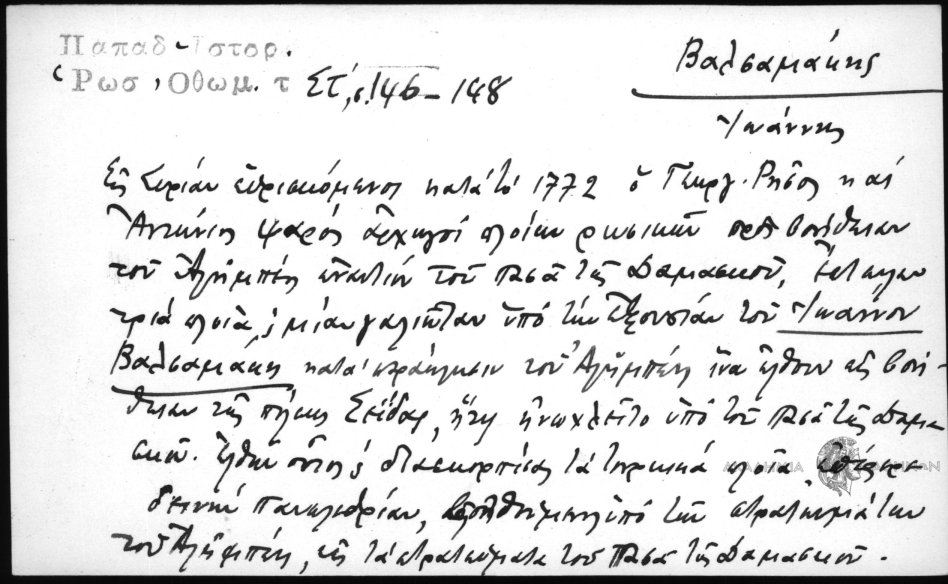 Παπαδ - Ιστορ.
Ρωσ, Οθωμ. τ ΣΤ', σ. 146 - 148
Βαλσαμάκης
Ἰωάννης
Εἰς Συρίαν εὑρισκόμενοι κατὰ τὸ 1772 ὁ Γεώργ. Ρῆσος καὶ
Ἀντώνιος Ψαρός ἀρχηγοί πλοίων ρωσικῶν πρὸς βοήθειαν
τοῦ Ἀλήμπέη ἐναντίον τοῦ Πασᾶ τῆς Δαμασκοῦ, ἔστειλαν
τρία πλοῖα, καὶ μίαν γαλιῶταν ὑπό τὴν ἐξουσίαν τοῦ Ἰωάννου
Βαλσαμάκη κατὰ τοῦ Ἀλήμπέη ἵνα ἔλθουν εἰς βοή-
θειαν τῆς πόλης ἥτις ἠνωχλεῖτο ὑπὸ τοῦ Πασᾶ τῆς Δαμα-
σκοῦ. οὗτος καὶ διασκορπίσας τὰ τουρκικά πλοῖα
ὑπό τῶν στρατευμάτων
τοῦ Ἀλήμπέη, εἰς τὰ στρατεύματα τοῦ Πασᾶ τῆς Δαμασκοῦ.
ΑΚΑΔΗΜΙΑ ΑΘΗΝΩΝ